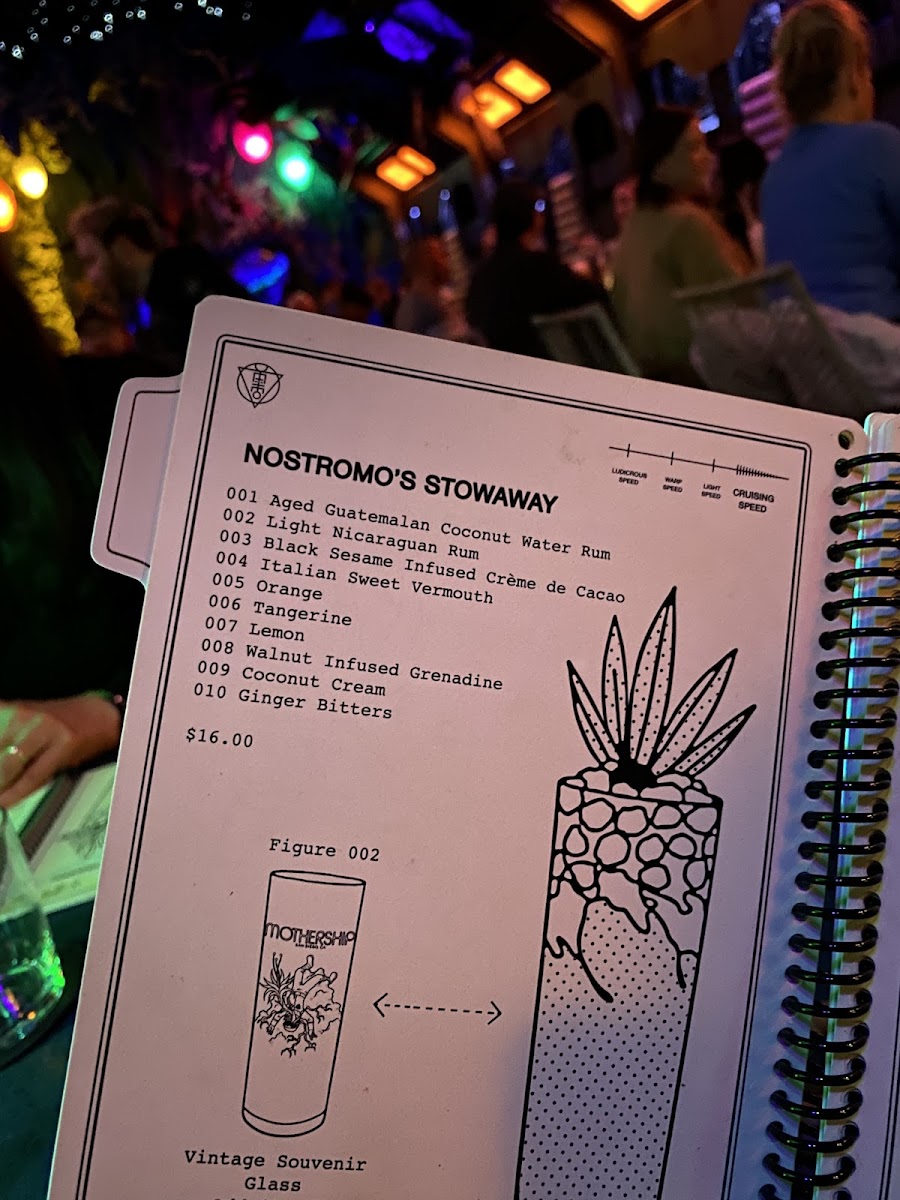 NOSTROMO'S STOWAWAY
LUDICROUS SPEED
WARP SPEED
LIGHT SPEED
CRUISING SPEED
001 Aged Guatemalan Coconut Water Rum
002 Light Nicaraguan Rum
003 Black Sesame Infused Crème de Cacao
004 Italian Sweet Vermouth
005 Orange
006 Tangerine
007 Lemon
008 Walnut Infused Grenadine
009 Coconut Cream
010 Ginger Bitters
$16.00
Figure 002
MOTHERSHIP
SAN DIEGO CA
Vintage Souvenir
Glass